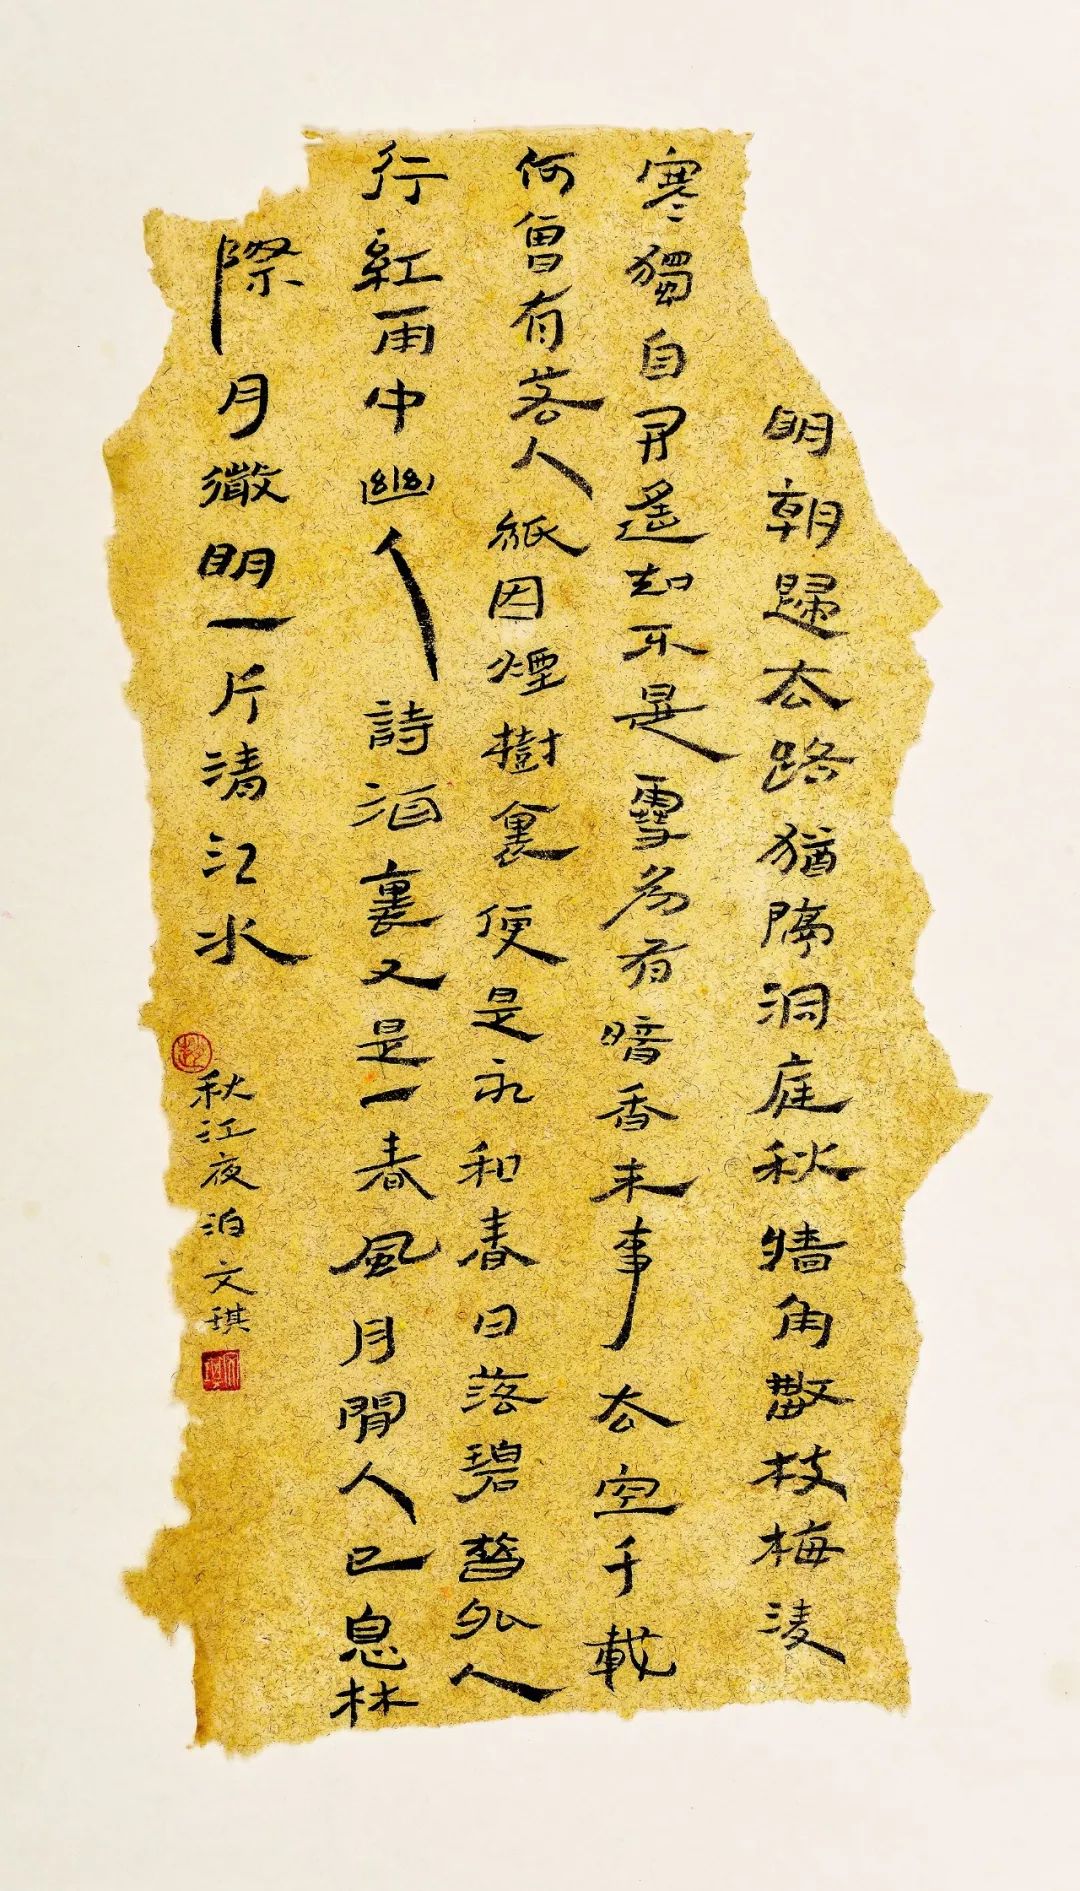 明朝歸去路猶隔洞庭秋牆角數枝梅淩
寒獨自开遙知不是雪為有暗香來事去空千載
何曾有若人祇因煙樹裏便是永和春日落碧簪外人
行紅雨中幽人詩酒裏又是一春風舟閒人已息林
際月微明一片清江水
秋江夜泊文琪